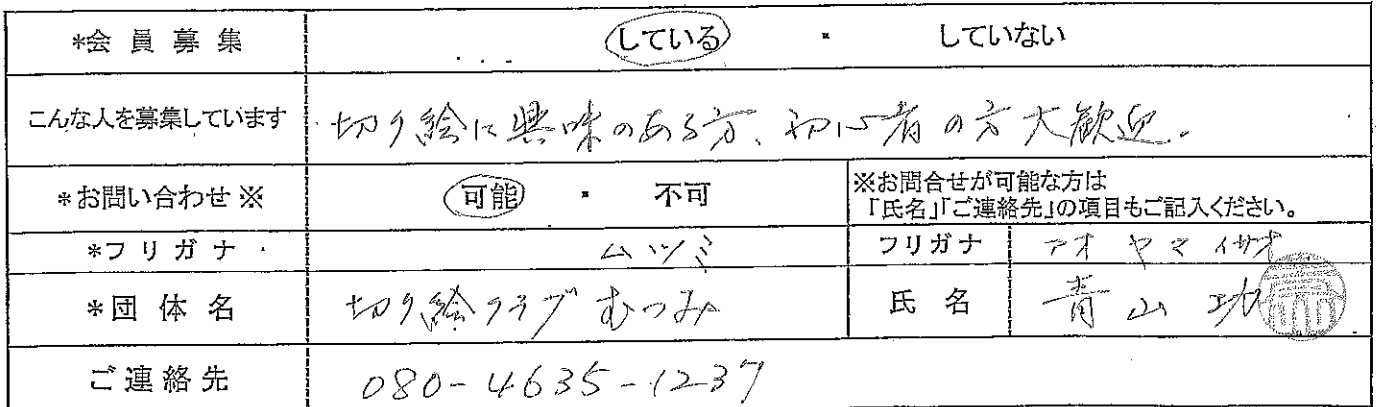 *会員募集 している ・ していない
こんな人を募集しています 切り絵に興味のある方、初心者の方大歓迎.
*お問い合わせ※ 可能 ・ 不可 ※お問合せが可能な方は
「氏名」「ご連絡先」の項目もご記入ください。
*フリガナ ムツミ フリガナ アオヤマイサオ
*団体名 切り絵クラブむつみ 氏名 青山功
ご連絡先 080-4635-1237